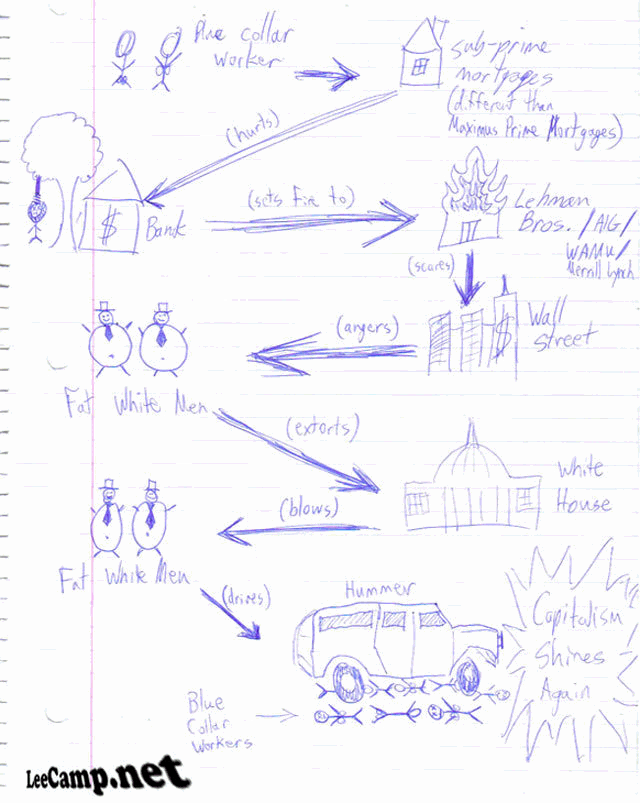 Blue collar
worker
sub-prime
mortgages
(different than
Maximus Prime Mortgages)
(hurts)
$
Bank
(sets fire to)
Lehman
Bros. / AIG /
WAMU /
Merrill Lynch
(scares)
Wall
Street
$
(angers)
Fat White Men
(extorts)
White
House
(blows)
Fat White Men
(drives)
Hummer
Capitalism
Shines
Again
Blue
Collar
Workers
LeeCamp.net